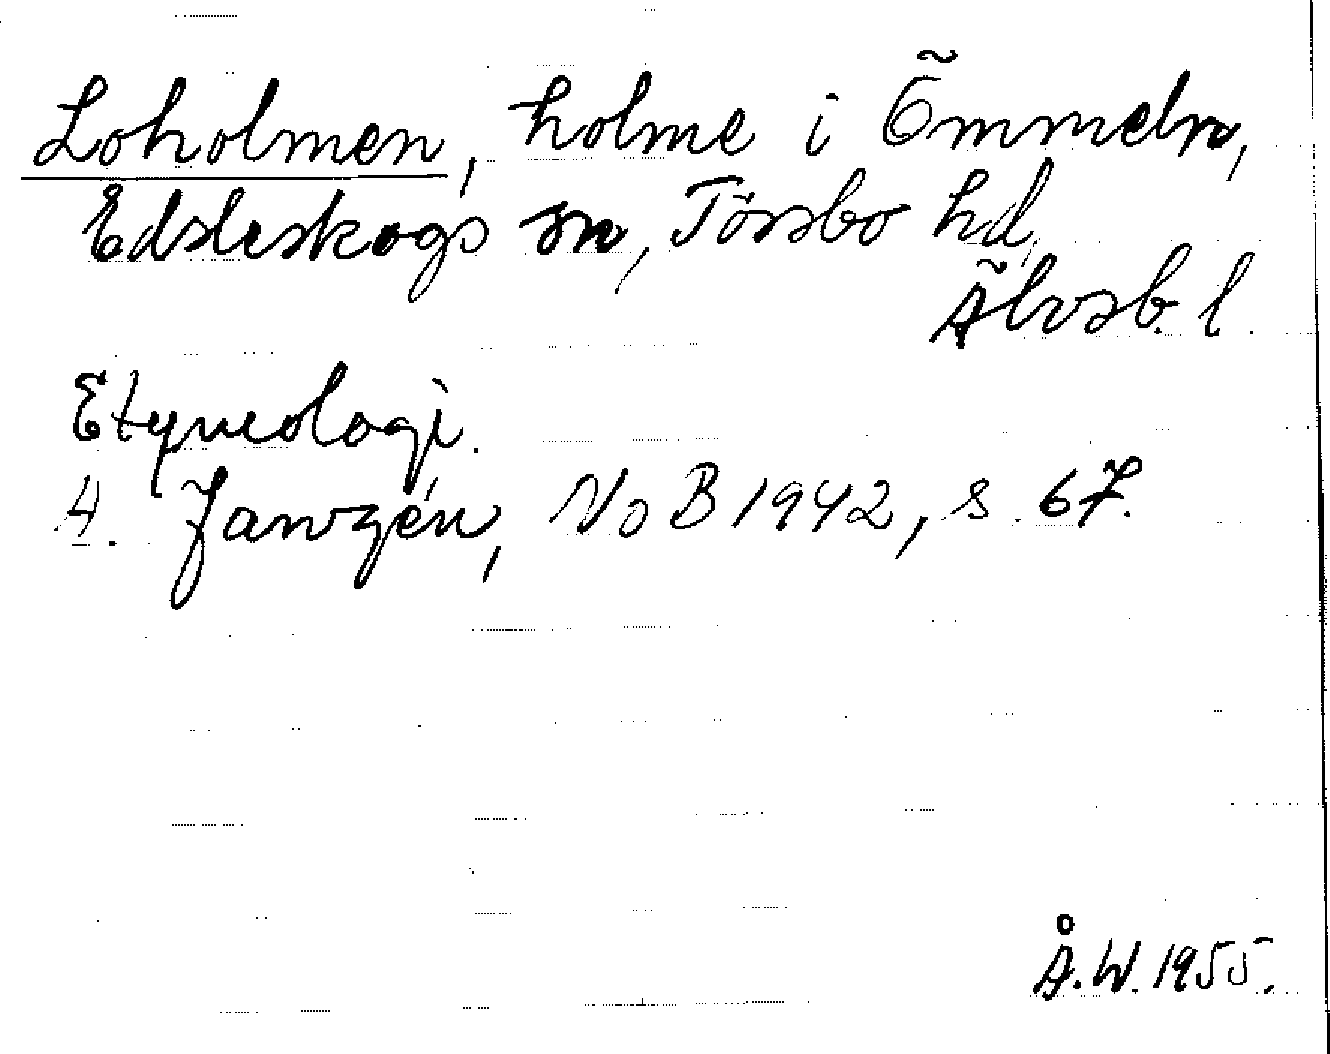 Loholmen, holme i Ömmeln,
Edsleskogs sn, Tössbo hd,
Älvsb. l.
Etymologi.
A. Janzén, NoB 1942, s. 67.
Å.W. 1955.